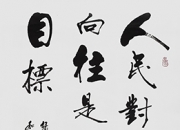 人民對
向往是
目標